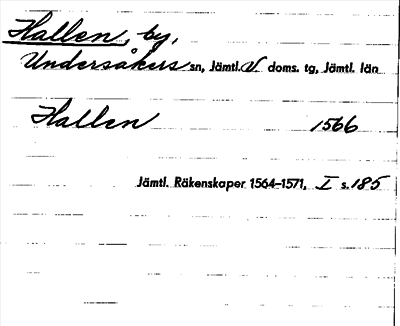 Hallen, by,
Undersåkers sn, Jämtl. V. doms. tg, Jämtl. län
Hallen 1566
Jämtl. Räkenskaper 1564–1571, I s. 185